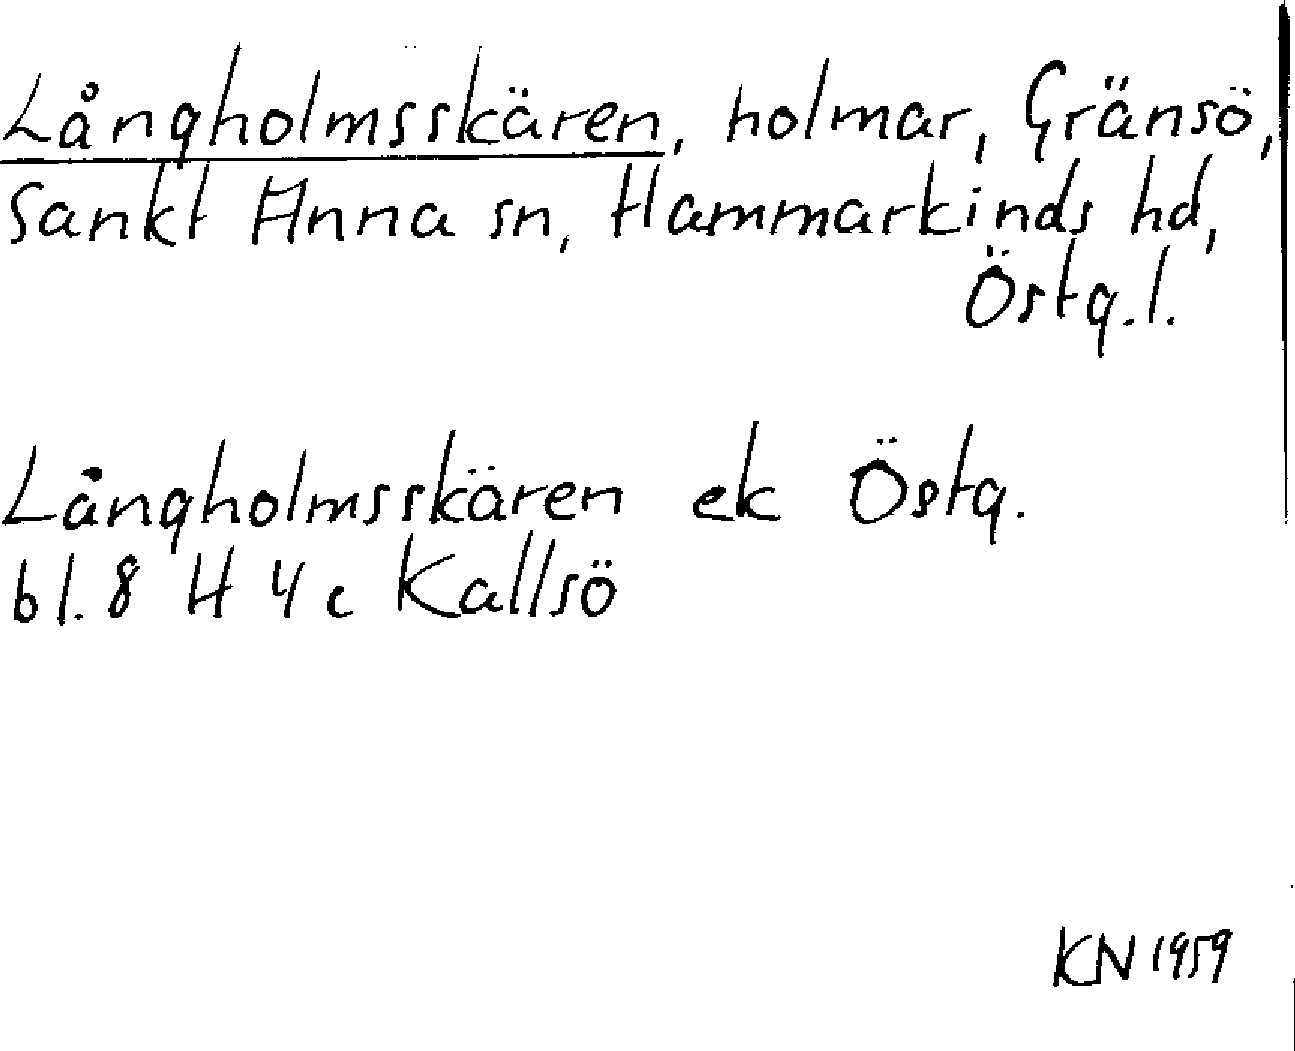 Långholmsskären, holmar, Gränsö,
Sankt Anna sn, Hammarkinds hd,
Östg.l.
Långholmsskären ek Östg.
bl. 8 H 4 c Kallsö
KN 1959